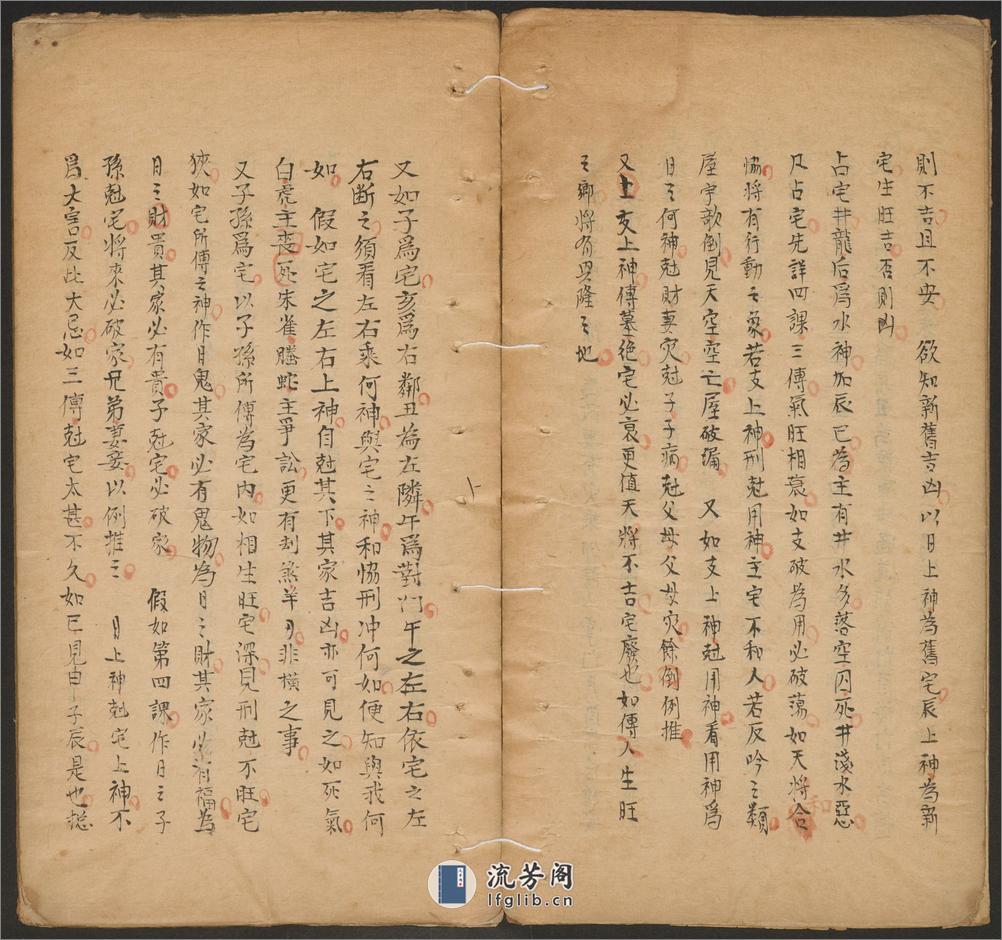 則不吉且不安　欲知新舊吉凶以日上神為舊宅辰上神為新
宅生旺吉否則凶
占宅井龍后為水神加辰巳為主有井水多落空囚死井淺水惡
凡占宅先詳四課三傳氣旺相衰如支破為用必破蕩如天將合
恊將有行動之象若支上神刑尅用神主宅不和人若反吟之類
屋宇欹倒見天空空亡屋破漏　又如支上神尅用神看用神為
日之何神尅財妻灾尅子子病尅父母父母灾餘倒例推
又上支上神傳墓絶宅必衰更值天將不吉宅廢也如傳人生旺
之鄉將有興隆之地
卜
又如子為宅亥為右鄰丑為左隣午為對門午之左右依宅之左
右断之須看左右乘何神與宅之神和恊刑冲何如便知與我何
如　假如宅之左右上神自尅其下其家吉凶亦可見之如死氣
白虎主喪死朱雀螣蛇主爭訟更有刦煞羊刃非橫之事
又子孫為宅以子孫所傳為宅内如相生旺宅深見刑尅不旺宅
狹如宅所傳之神作日鬼其家必有鬼物為日之財其家必有福為
日之財貴其家必有貴子尅宅必破家　假如第四課作日之子
孫尅宅將來必破家兄弟妻妾以例推之　日上神尅宅上神不
為大害反此大忌如三傳尅宅太甚不久如巳見申子辰是也㧾
和
流芳阁
lfglib.cn